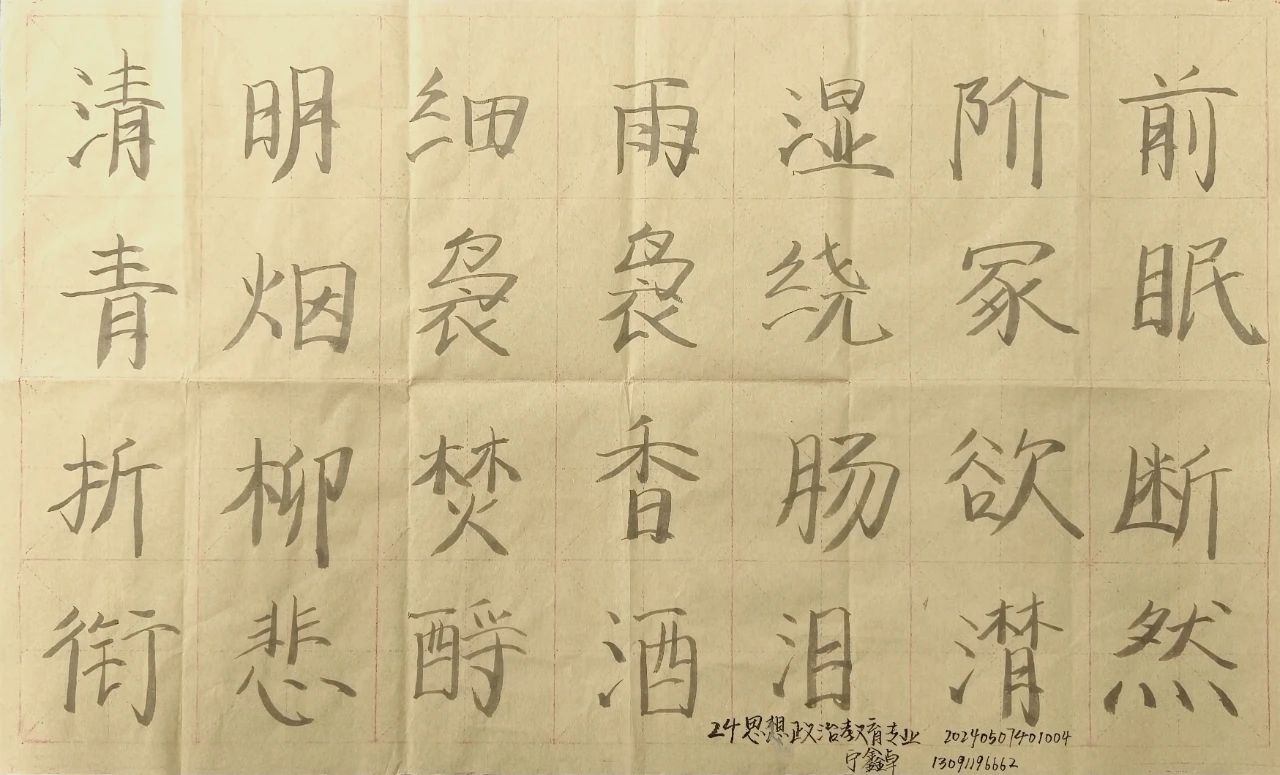 清明细雨湿阶前
青烟袅袅绕冢眠
折柳焚香肠欲断
衔悲酹酒泪潸然
24思想政治教育专业 20240507401004
宁鑫卓 13091196662